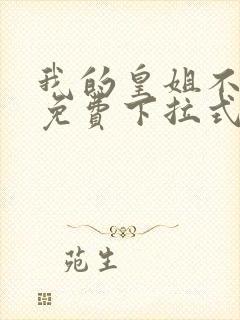 我的皇姐不
免費下拉式
苑生